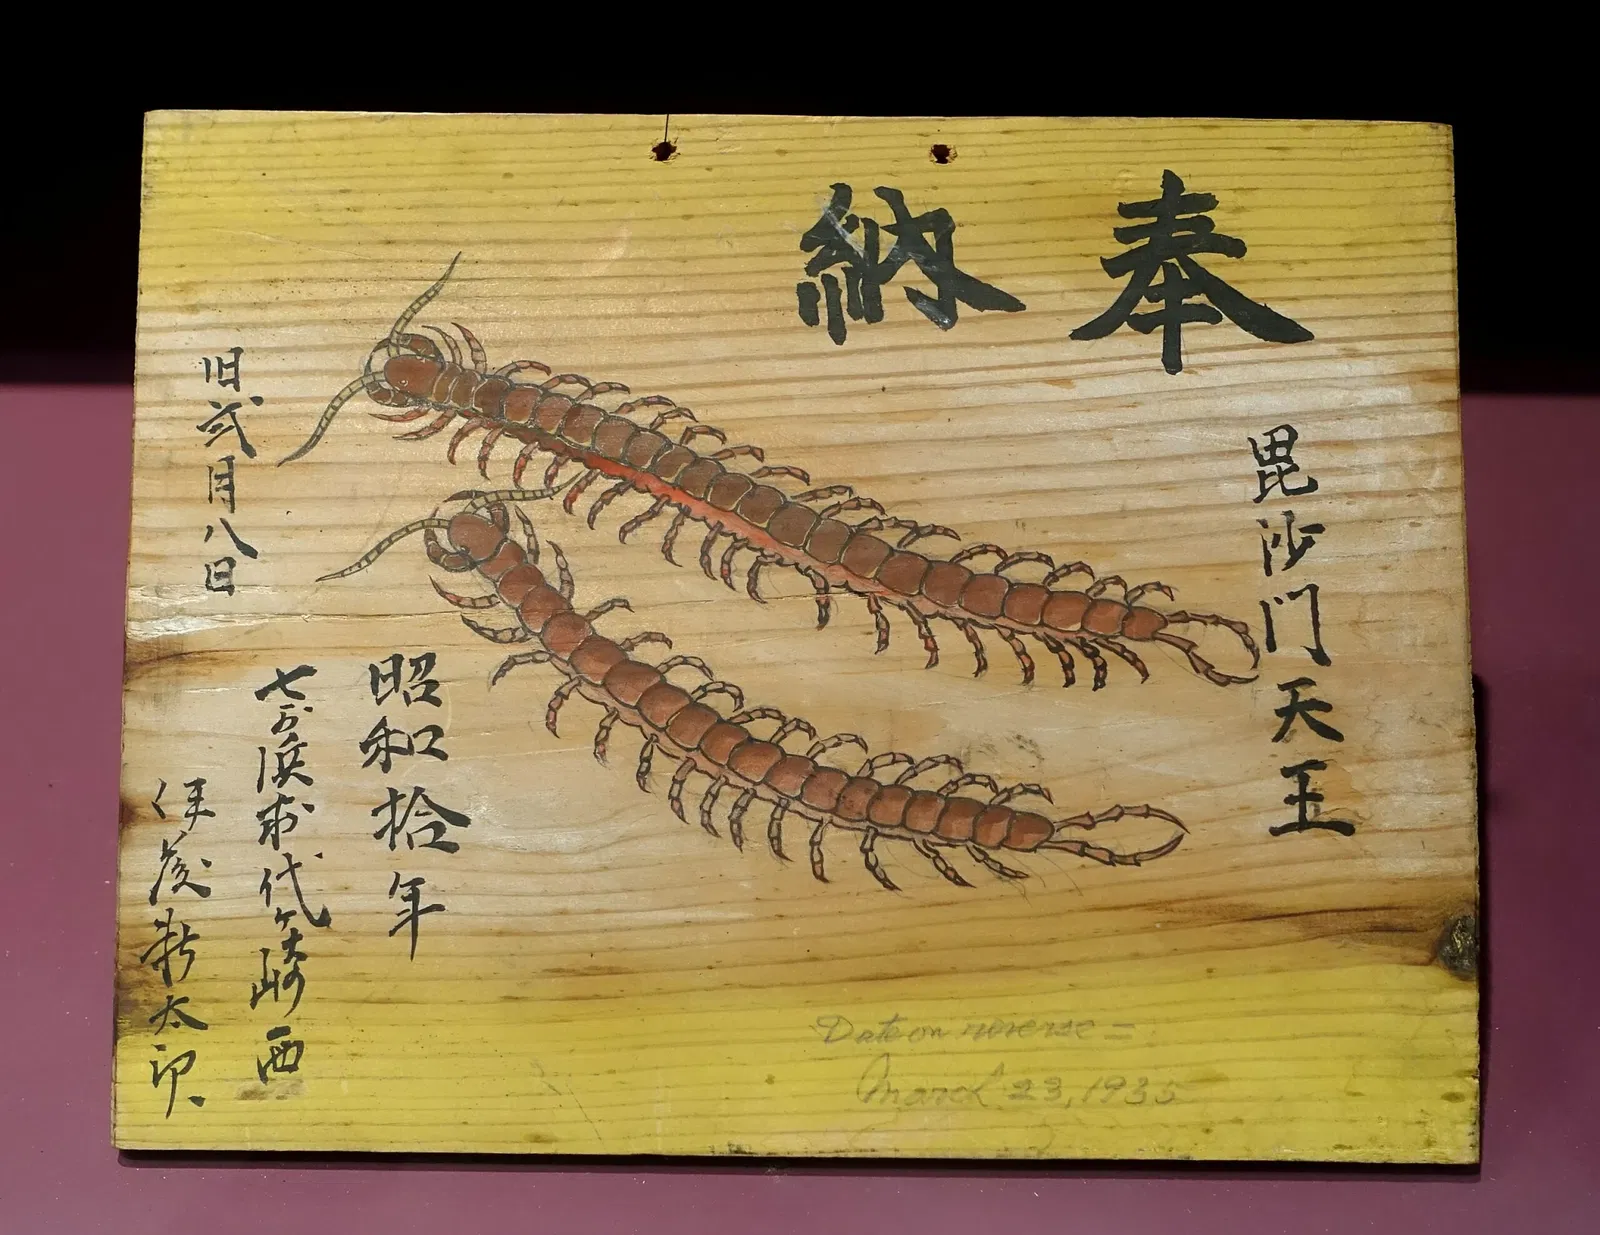 奉納
毘沙門天王
昭和拾年
旧弐月八日
七ヶ浜村代ヶ崎西
伊藤新太郎
Date on reverse =
March 23, 1935